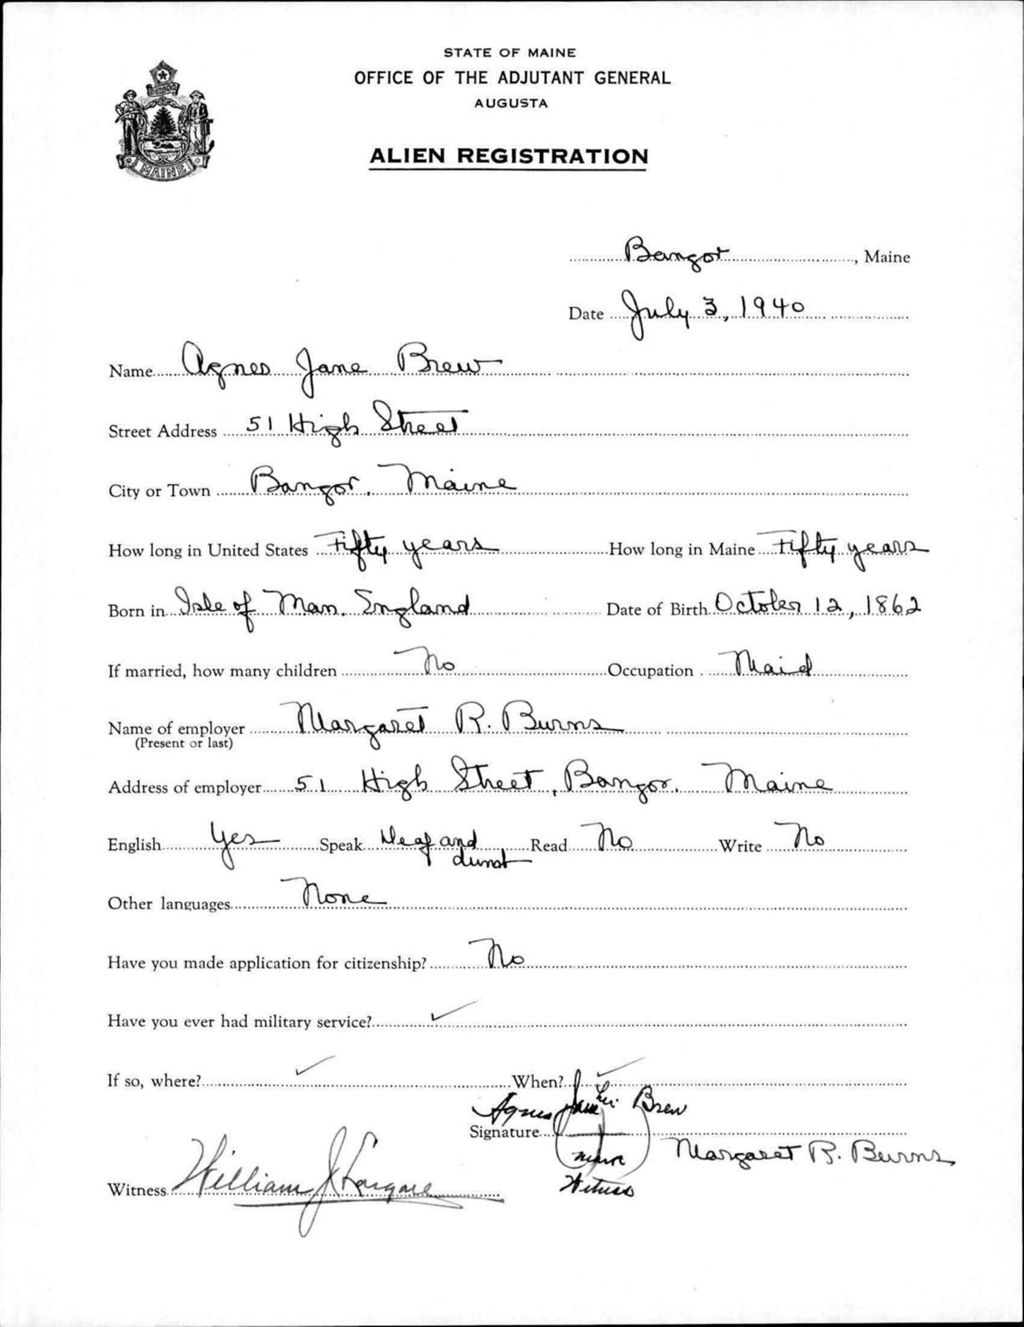 STATE OF MAINE
OFFICE OF THE ADJUTANT GENERAL
AUGUSTA
ALIEN REGISTRATION
MAINE
Bangor, Maine
Date July 3, 1940
Name Agnes Jane Brew
Street Address 51 High Street
City or Town Bangor, Maine
How long in United States Fifty years How long in Maine Fifty years
Born in Isle of Man. England Date of Birth October 12, 1862
If married, how many children No Occupation Maid
Name of employer Margaret R. Burns
(Present or last)
Address of employer 51 High Street, Bangor, Maine
English Yes Speak Deaf and dumb Read No Write No
Other languages None
Have you made application for citizenship? No
Have you ever had military service? ✓
If so, where? ✓ When? ✓
Agnes Jane her Brew
Signature
mark Margaret R. Burns
Witness
Witness William J.